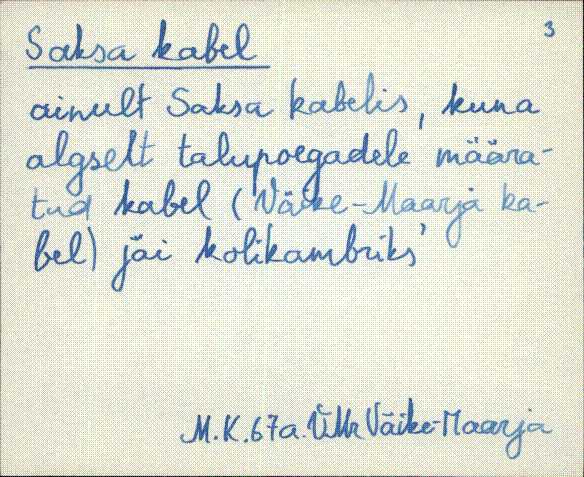 3
Saksa kabel
ainult Saksa kabelis, kuna
algselt talupoegadele määra-
tud kabel (Väike-Maarja ka-
bel) jäi kolikambriks'
M.K. 67a. VMr Väike-Maarja